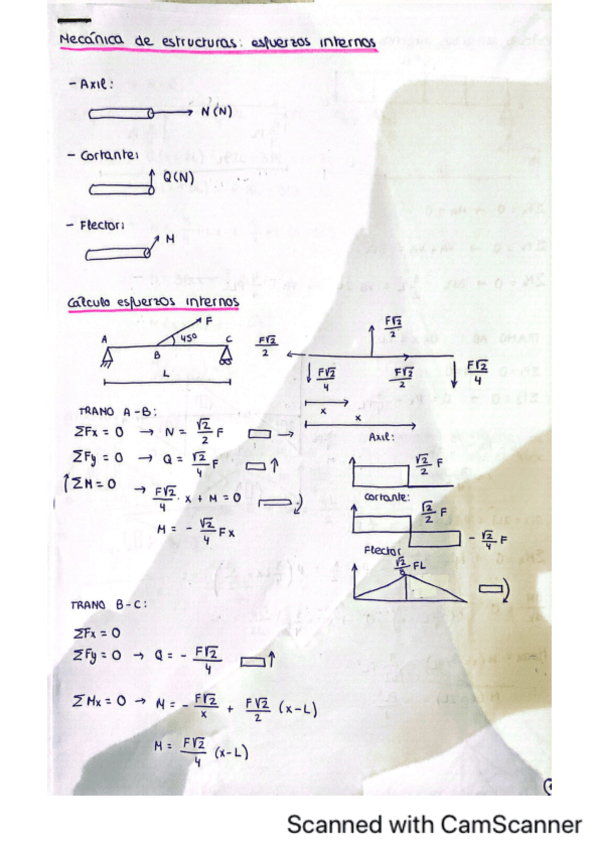 Mecánica de estructuras: esfuerzos internos
- Axil:
N(N)
- Cortante:
Q(N)
- Flector:
M
Calculo esfuerzos internos
A B C F 45º
L
F√2/2
F√2/2
F√2/4
F√2/2
F√2/4
x
x
TRAMO A-B:
ΣFx = 0 → N = √2/2 F
ΣFy = 0 → Q = √2/4 F
ΣM = 0 → F√2/4 · x + M = 0
M = - √2/4 Fx
Axil:
√2/2 F
Cortante:
√2/2 F
- √2/4 F
Flector
√2/8 FL
TRAMO B-C:
ΣFx = 0
ΣFy = 0 → Q = - F√2/4
ΣMx = 0 → M = - F√2/x + F√2/2 (x-L)
M = F√2/4 (x-L)
Scanned with CamScanner